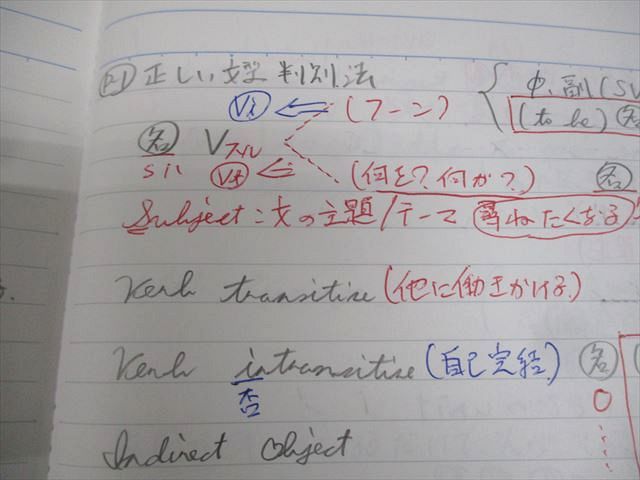 P1 正しい文型判別法
中、副(SV
Vi ⇐ (フーン)
(to be) 名
名 Vスル
S1)
Vt ⇐ (何を?何が?) 名
Subject:文の主題/テーマ 尋ねたくなる!
Verb transitive (他に働きかける)
Verb intransitive (自己完結) 名
否 O
Indirect Object